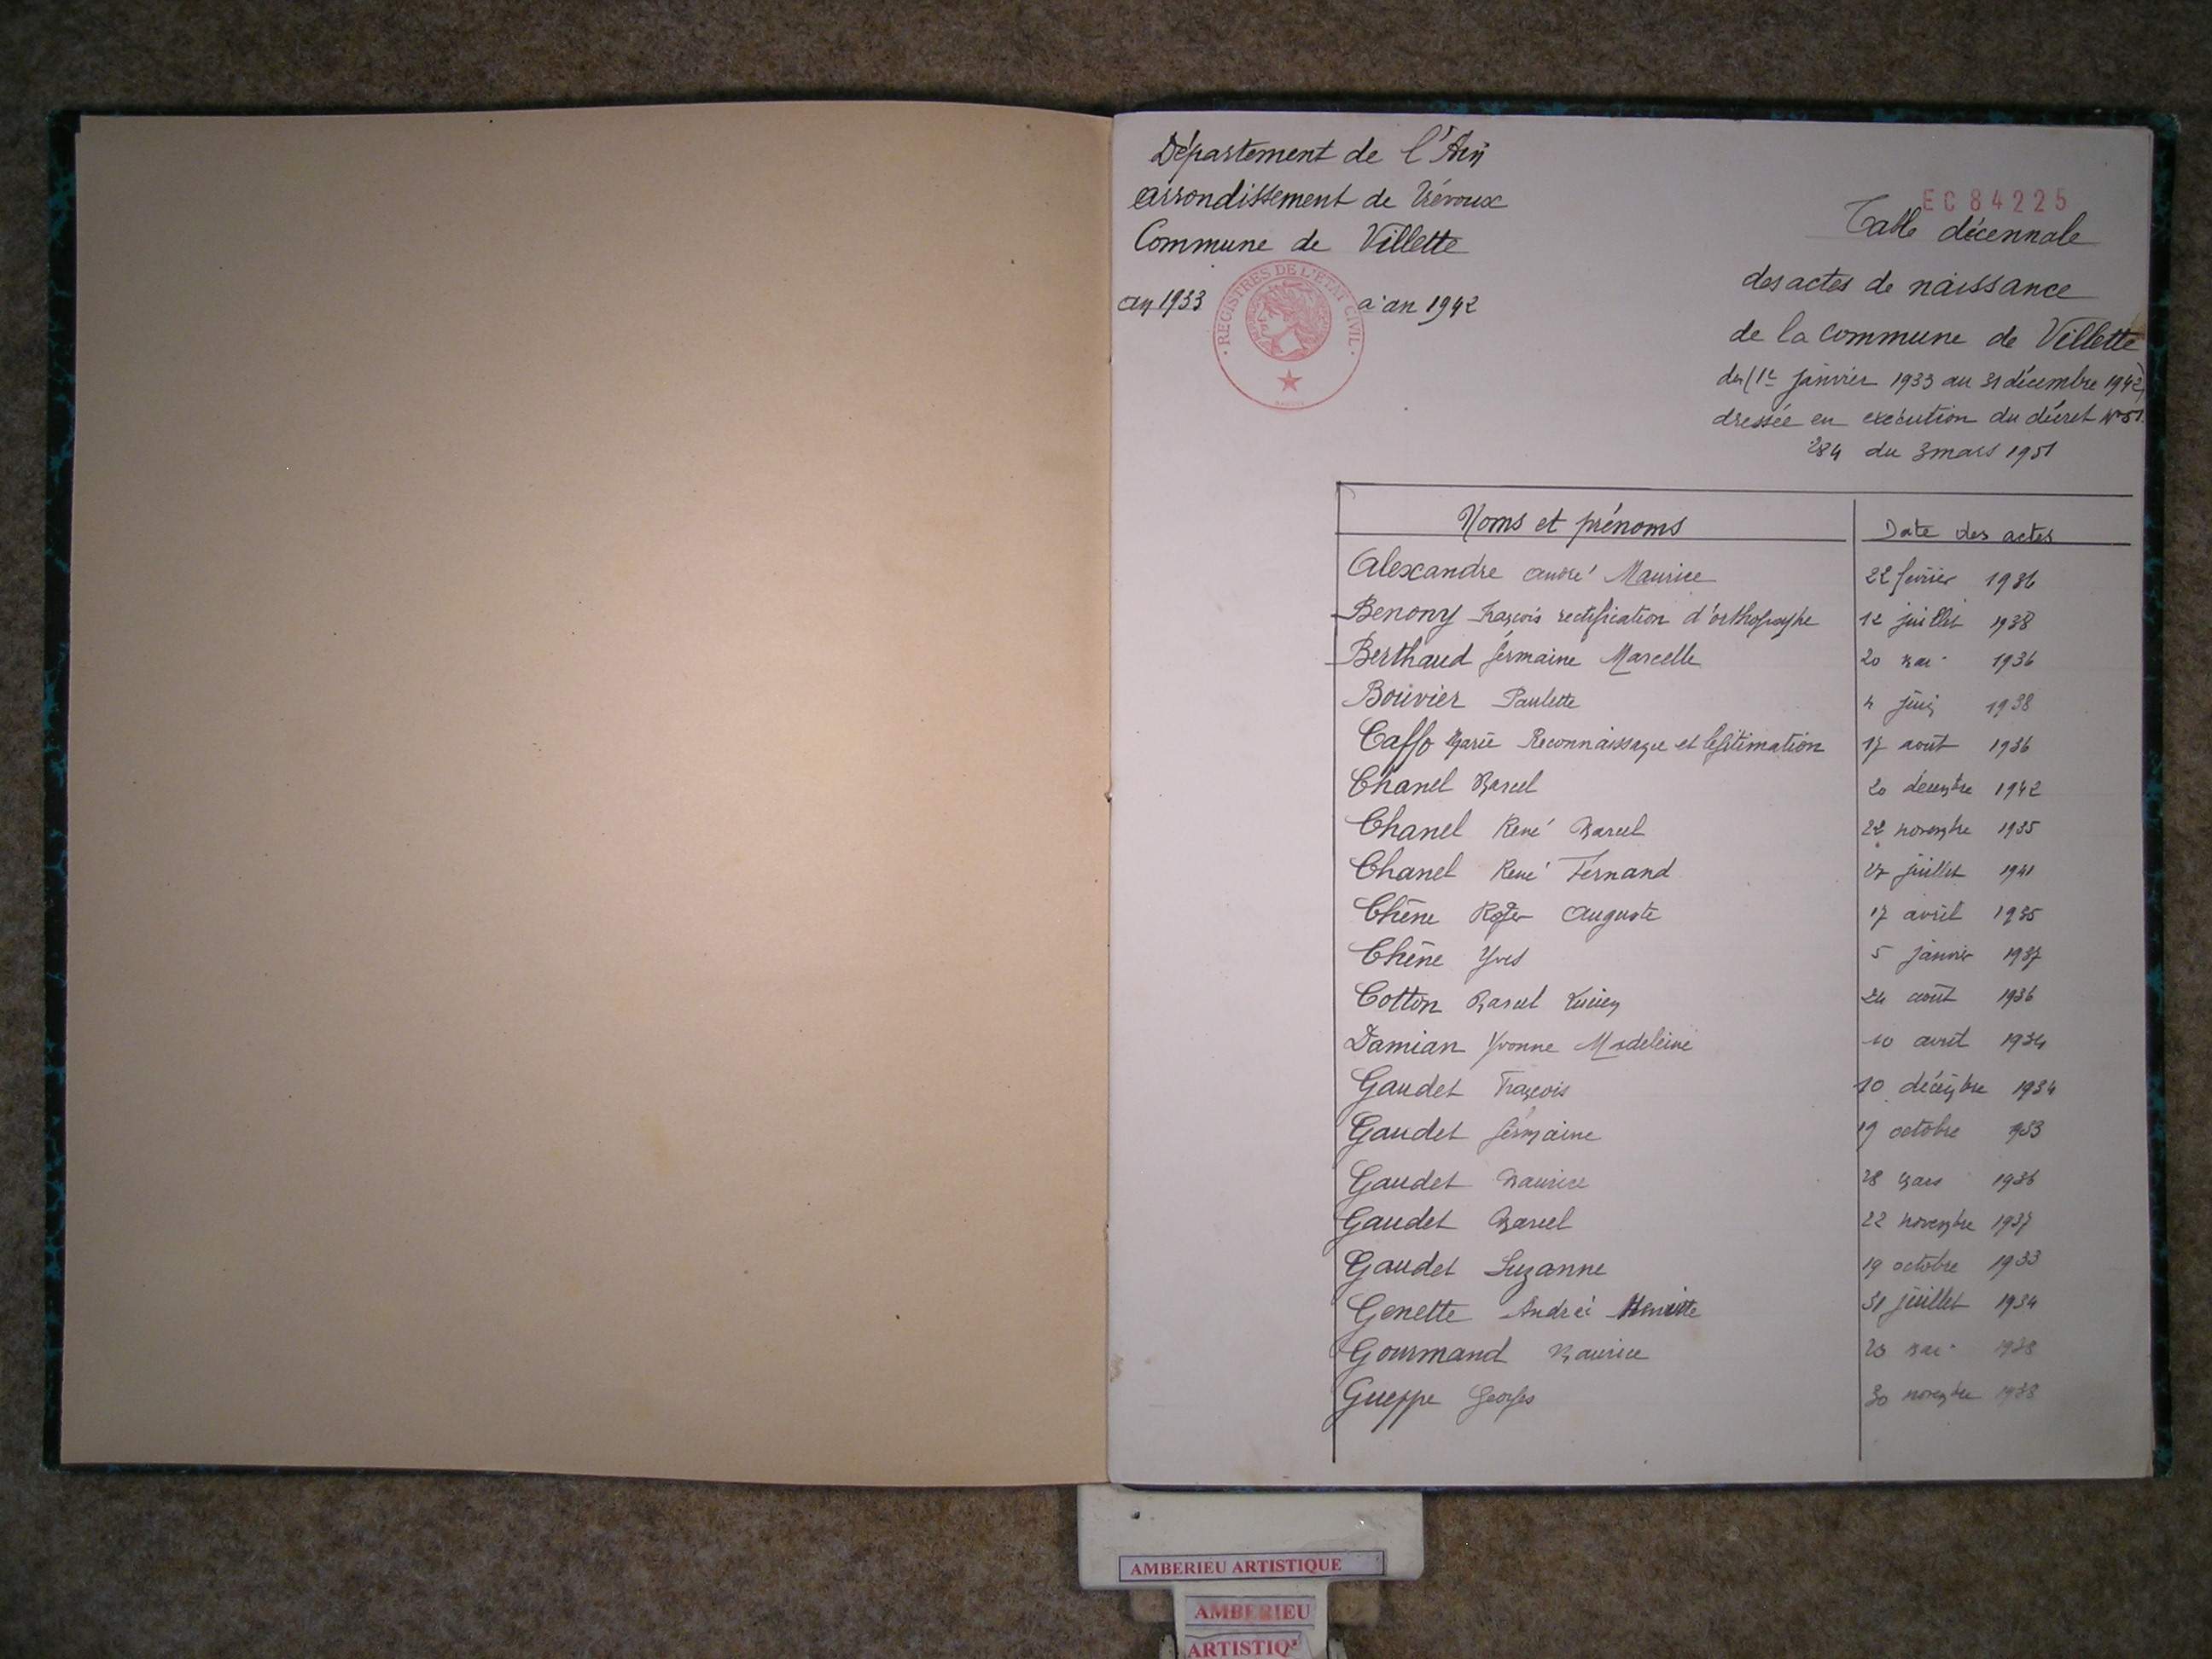 Département de l'Ain
arrondissement de Trévoux
Commune de Villette
an 1933 à an 1942
REGISTRES DE L'ETAT CIVIL
EC84225
Table décennale
des actes de naissance
de la commune de Villette
du (1er janvier 1933 au 31 décembre 1942)
dressée en execution du décret N°51.
284 du 3 mars 1951
Noms et prénoms Date des actes
Alexandre André Maurice 22 février 1936
Benony François rectification d'orthographe 12 juillet 1938
Berthaud Germaine Marcelle 20 mai 1936
Bouvier Paulette 4 juin 1938
Caffo Marie Reconnaissance et légitimation 17 août 1936
Chanel Marcel 20 décembre 1942
Chanel René Marcel 22 novembre 1935
Chanel René Fernand 27 juillet 1941
Chêne Roger Auguste 17 avril 1935
Chêne Yves 5 janvier 1937
Cotton Marcel Lucien 24 août 1936
Damian Yvonne Madeleine 10 avril 1934
Gaudet François 10 décembre 1934
Gaudet Germaine 19 octobre 1933
Gaudet Maurice 28 mars 1936
Gaudet Marcel 22 novembre 1937
Gaudet Suzanne 19 octobre 1933
Genette André Henriette 31 juillet 1934
Gourmand Maurice mai 1938
Gueppe Georges 30 novembre 1938
AMBERIEU ARTISTIQUE
AMBERIEU
ARTISTIQ